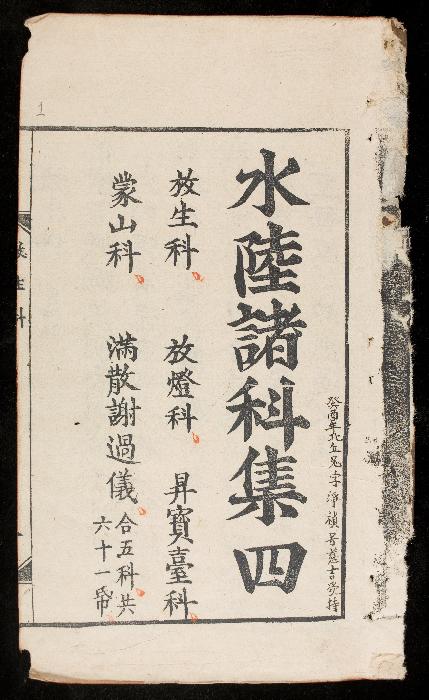 水陸諸科集四
放生科 放燈科 昇寶臺科
蒙山科 滿散謝過儀 合五科共
六十一帋
癸酉年
淨禎号慈吉受持
1
生科